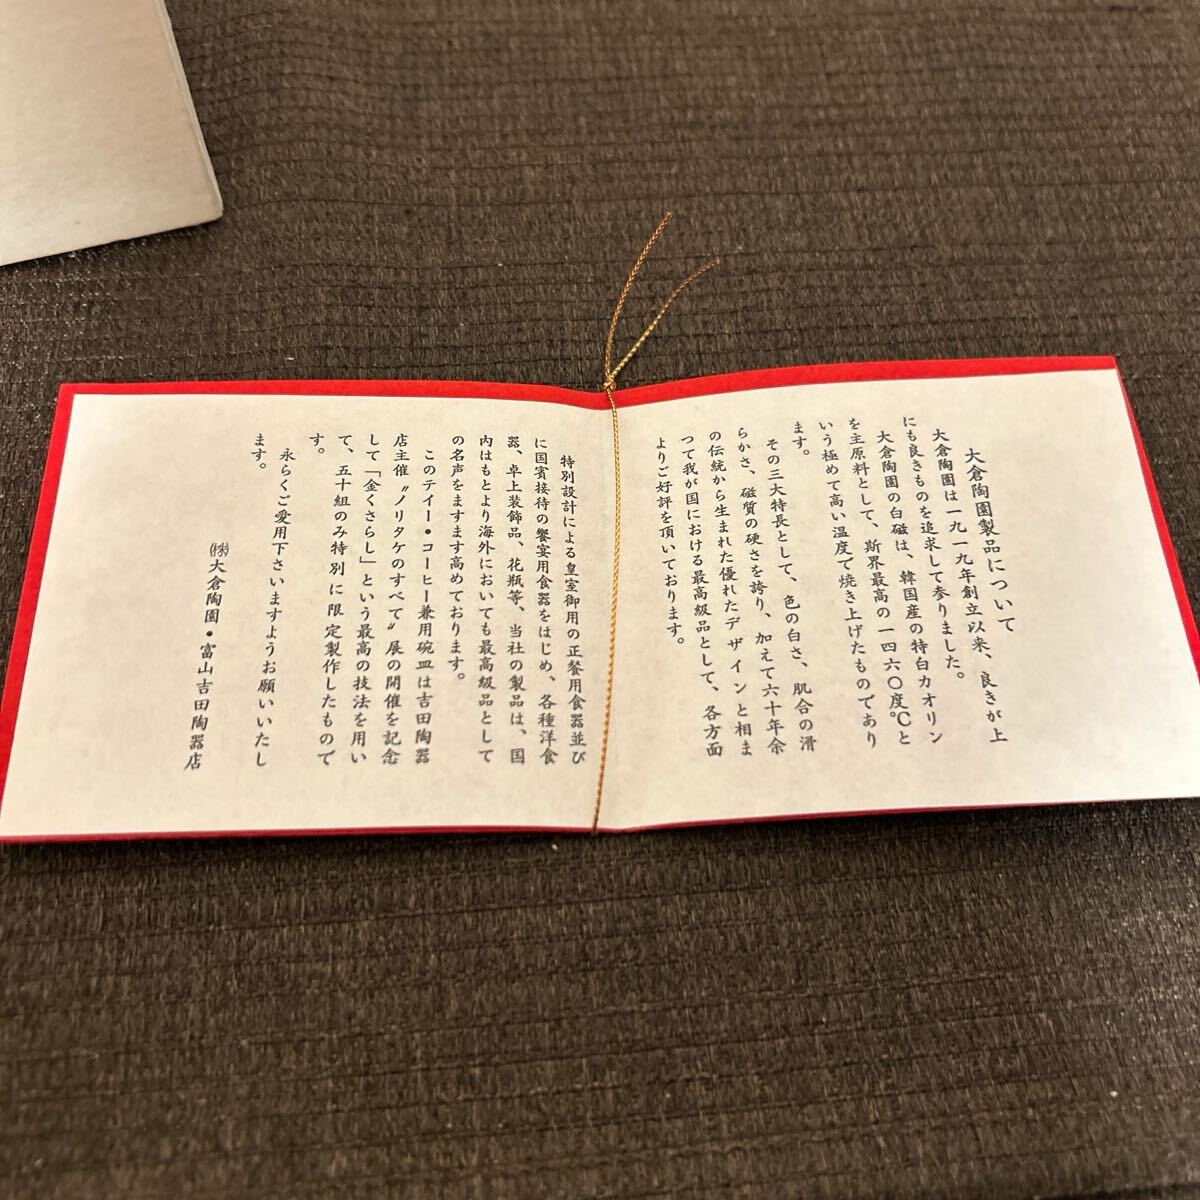 大倉陶園製品について
大倉陶園は一九一九年創立以来、良きが上
にも良きものを追求して参りました。
大倉陶園の白磁は、韓国産の特白カオリン
を主原料として、斯界最高の一四六〇度℃と
いう極めて高い温度で焼き上げたものであり
ます。
その三大特長として、色の白さ、肌合の滑
らかさ、磁質の硬さを誇り、加えて六十年余
の伝統から生まれた優れたデザインと相ま
つて我が国における最高級品として、各方面
よりご好評を頂いております。
特別設計による皇室御用の正餐用食器並び
に国賓接待の饗宴用食器をはじめ、各種洋食
器、卓上装飾品、花瓶等、当社の製品は、国
内はもとより海外においても最高級品として
の名声をますます高めております。
このテイー・コーヒー兼用碗皿は吉田陶器
店主催〝ノリタケのすべて〟展の開催を記念
して「金くさらし」という最高の技法を用い
て、五十組のみ特別に限定製作したもので
す。
永らくご愛用下さいますようお願いいたし
ます。
㈱大倉陶園・富山吉田陶器店